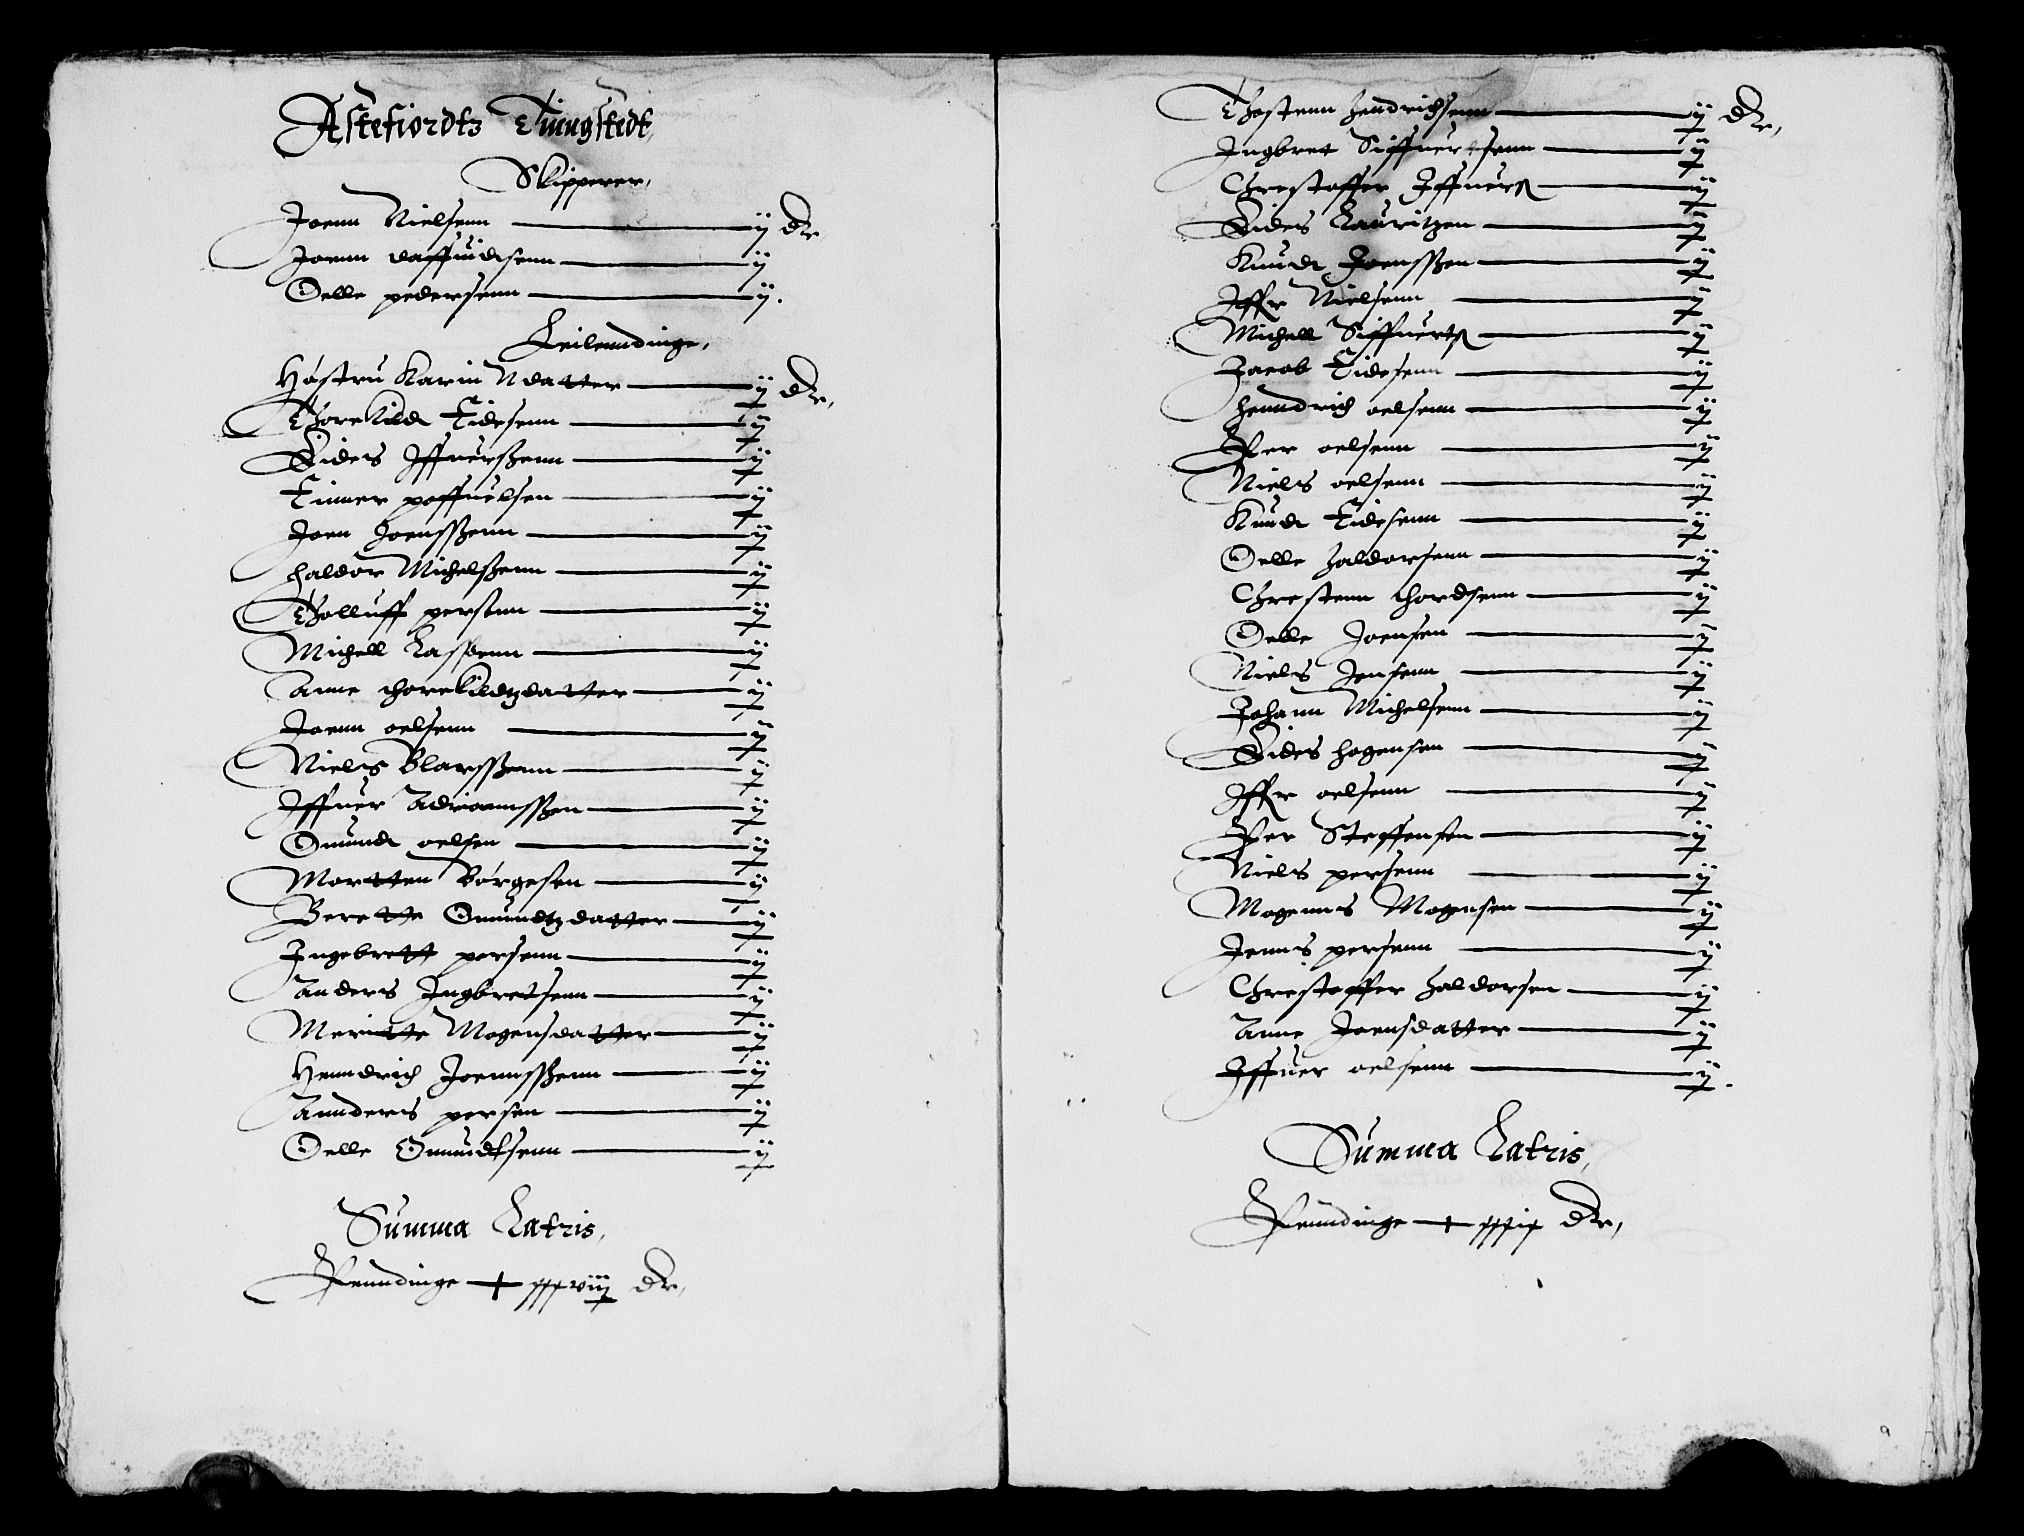 Astefiordtz Tinngstedt,
Skipperer,
Joenn Nielsenn — ij dr
Joenn Daffuidtsenn — ij
Oelle pedersenn — ij.
Leilenndinge,
Høstru Karin Ndatter — ij dr,
Thorekildt Tidesenn — ij
Tides Iffuersßenn — ij
Tinner poffuelsen — ij
Joen Joensßenn — ij
Haldor Michelßenn — ij
Tholluff persenn — ij
Michell Lassenn — ij
Anne thorekildtzdatter — ij
Joenn oelsenn — ij
Niels Blarsßenn — ij
Iffuer Adriannsßen — ij
Omundt oelsen — ij
Mortten Børgesen — ij
Berette Omundtzdatter — ij
Ingebrett persenn — ij
Anders Ingbretsenn — ij
Meritte Mogensdatter — ij
Henndrich Joennsßenn — ij
Annders persen — ij
Oelle Omundtsenn — ij
Summa Latris,
Penndinge — xxxxviij dr,
Thostenn Hendrichsenn — ij dr,
Ingbret Siffuertsenn — ij
Chrestoffer Iffuers — ij
Tides Lauritzen — ij
Knudt Joensßen — ij
Iffr Nielsenn — ij
Michell Siffuerts — ij
Jacob Tidesenn — ij
Henndrich oelsenn — ij
Per oelsenn — ij
Niels oelsenn — ij
Knudt Tidesenn — ij
Oelle Haldorsenn — ij
Chrestenn thordsenn — ij
Oelle Joensen — ij
Niels Jensenn — ij
Johann Michelsenn — ij
Tides Hogensen — ij
Iffr oelsenn — ij
Per Steffensen — ij
Niels persenn — ij
Mogenns Mogensen — ij
Jenns persenn — ij
Chrestoffer Haldorsen — ij
Anne Joensdatter — ij
Iffuer oelsenn — ij.
Summa Latris,
Penndinge — dr,